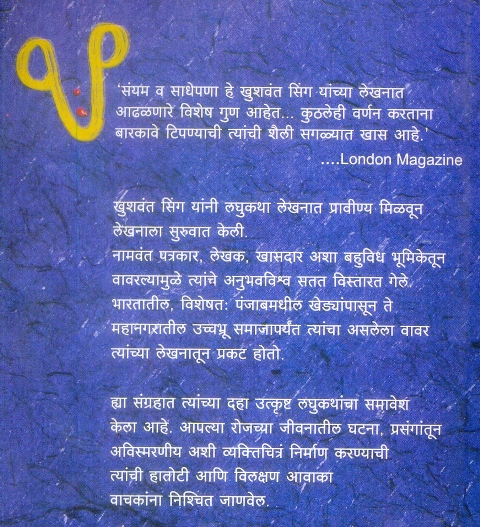 ‘संयम व साधेपणा हे खुशवंत सिंग यांच्या लेखनात
आढळणारे विशेष गुण आहेत... कुठलेही वर्णन करताना
बारकावे टिपण्याची त्यांची शैली सगळ्यात खास आहे.’
....London Magazine
खुशवंत सिंग यांनी लघुकथा लेखनात प्रावीण्य मिळवून
लेखनाला सुरुवात केली.
नामवंत पत्रकार, लेखक, खासदार अशा बहुविध भूमिकेतून
वावरल्यामुळे त्यांचे अनुभवविश्व सतत विस्तारत गेले.
भारतातील, विशेषत: पंजाबमधील खेड्यांपासून ते
महानगरातील उच्चभ्रू समाजापर्यंत त्यांचा असलेला वावर
त्यांच्या लेखनातून प्रकट होतो.
ह्या संग्रहात त्यांच्या दहा उत्कृष्ट लघुकथांचा समावेश
केला आहे. आपल्या रोजच्या जीवनातील घटना, प्रसंगांतून
अविस्मरणीय अशी व्यक्तिचित्रं निर्माण करण्याची
त्यांची हातोटी आणि विलक्षण आवाका
वाचकांना निश्चित जाणवेल.